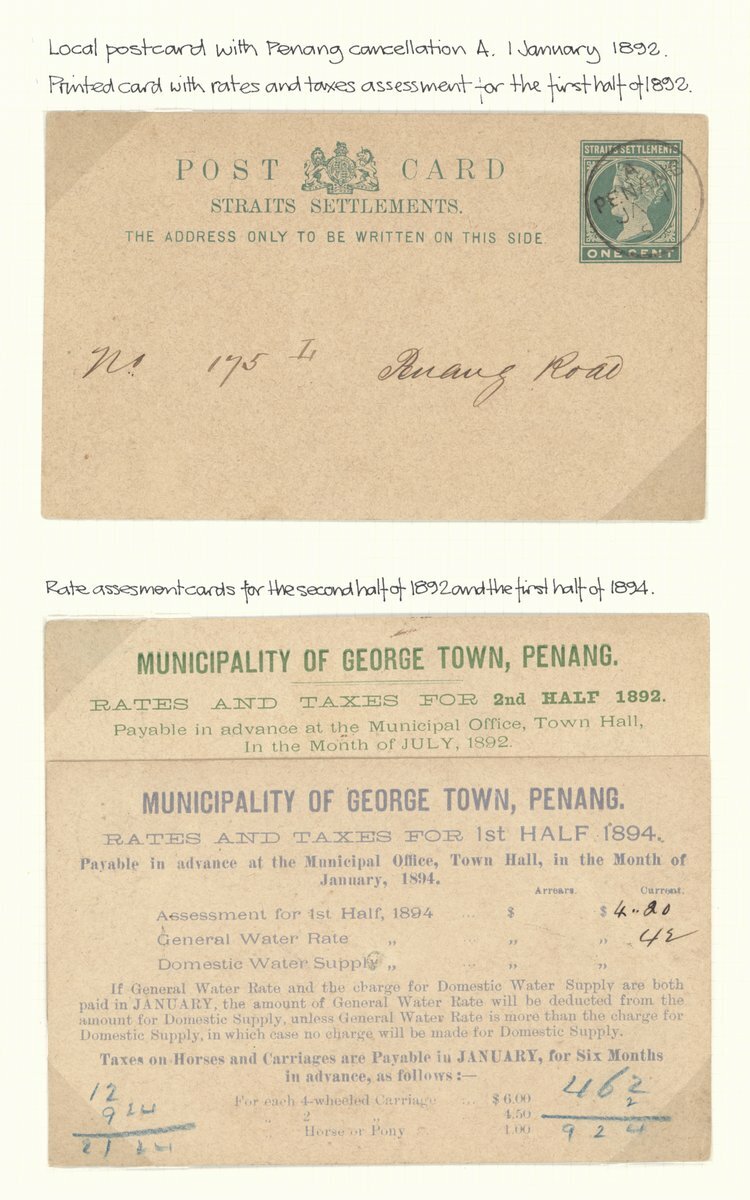 Local postcard with Penang cancellation A. 1 January 1892.
Printed card with rates and taxes assessment for the first half of 1892.
POST CARD
STRAITS SETTLEMENTS.
THE ADDRESS ONLY TO BE WRITTEN ON THIS SIDE.
STRAITS SETTLEMENTS
ONE CENT
PENANG
JA 1
No. 175 L Penang Road
Rate assesment cards for the second half of 1892 and the first half of 1894.
MUNICIPALITY OF GEORGE TOWN, PENANG.
RATES AND TAXES FOR 2nd HALF 1892.
Payable in advance at the Municipal Office, Town Hall,
In the Month of JULY, 1892.
MUNICIPALITY OF GEORGE TOWN, PENANG.
RATES AND TAXES FOR 1st HALF 1894.
Payable in advance at the Municipal Office, Town Hall, in the Month of
January, 1894.
Arrears. Current.
Assessment for 1st Half, 1894 ... $ $ 4.20
General Water Rate „ ... „ „ .42
Domestic Water Supply „ ... „ „
If General Water Rate and the charge for Domestic Water Supply are both
paid in JANUARY, the amount of General Water Rate will be deducted from the
amount for Domestic Supply, unless General Water Rate is more than the charge for
Domestic Supply, in which case no charge will be made for Domestic Supply.
Taxes on Horses and Carriages are Payable in JANUARY, for Six Months
in advance, as follows:—
For each 4-wheeled Carriage ... $ 6.00
„ 2 „ 4.50
Horse or Pony 1.00
12
9 24
21 24
462
2
9 2 4